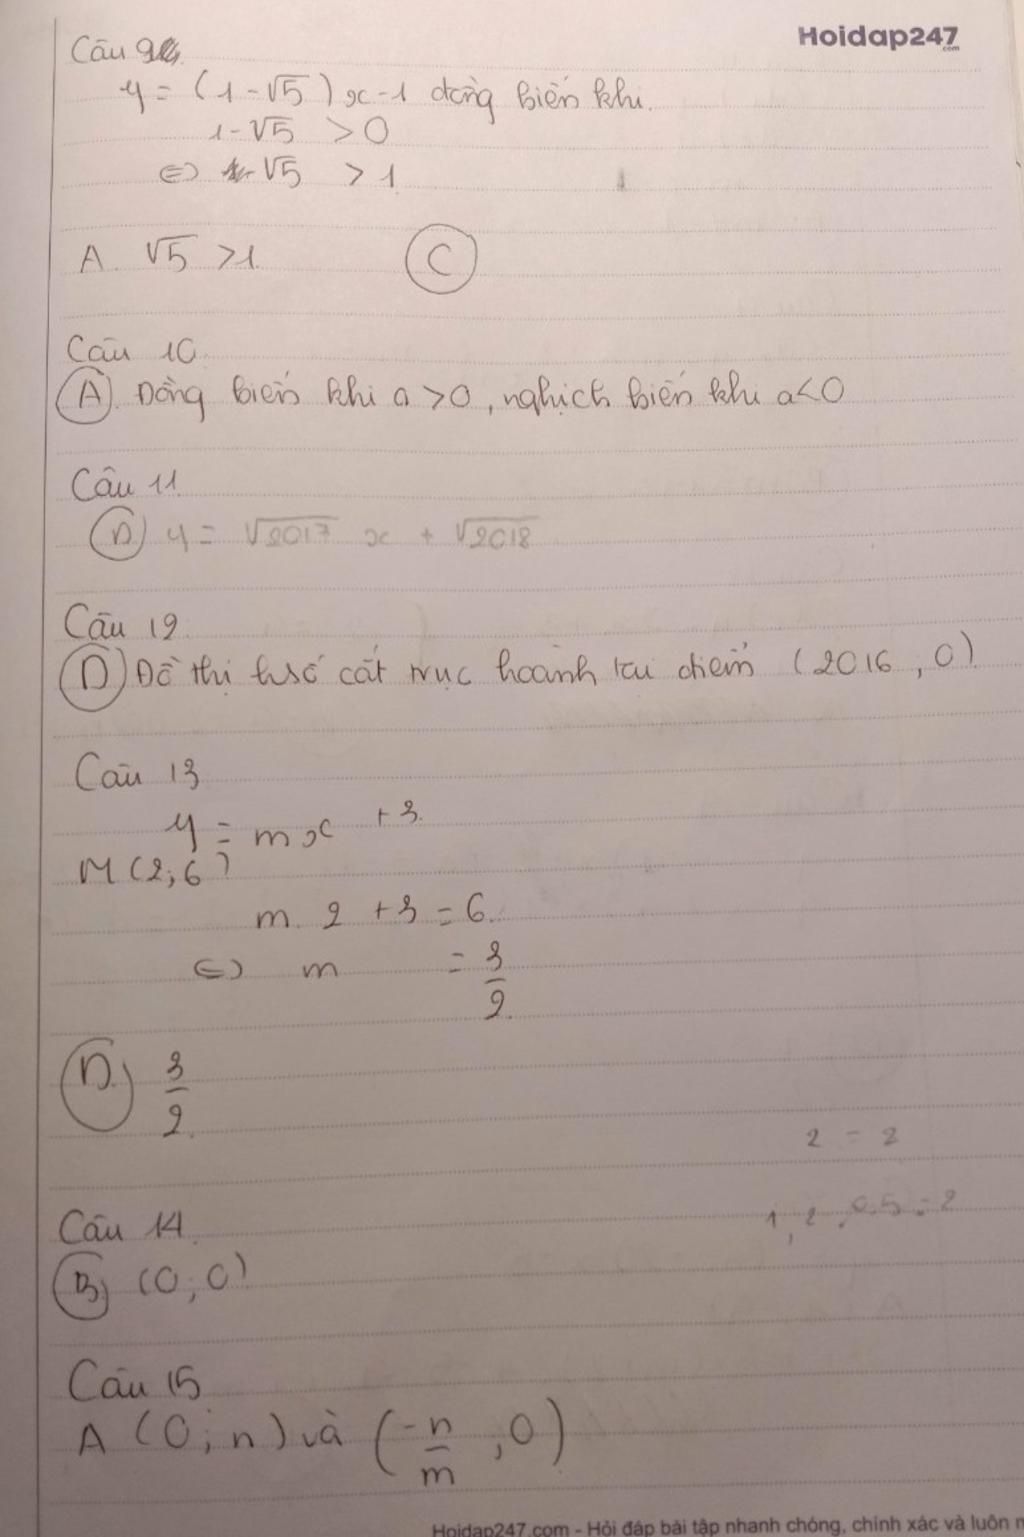 Hoidap247
.com
Câu 9
y = (1-√5)x-1 đồng biến khi.
1-√5 > 0
⇔ -√5 > 1
A. √5 >1. C
Câu 10.
A. Đồng biến khi a >0, nghịch biến khi a<0
Câu 11.
D) y = √2017 x + √2018
Câu 12.
D) Đồ thị hsố cắt trục hoành tại điểm (2016, 0)
Câu 13
y = mx +3.
M(2;6)
m. 2 +3 = 6.
⇔ m = 3/2.
D. 3/2.
2 = 2
Câu 14.
1, 2, 0.5 = 2
B) (0; 0)
Câu 15
A (0; n) và (-n/m, 0)
Hoidap247.com - Hỏi đáp bài tập nhanh chóng, chính xác và luôn